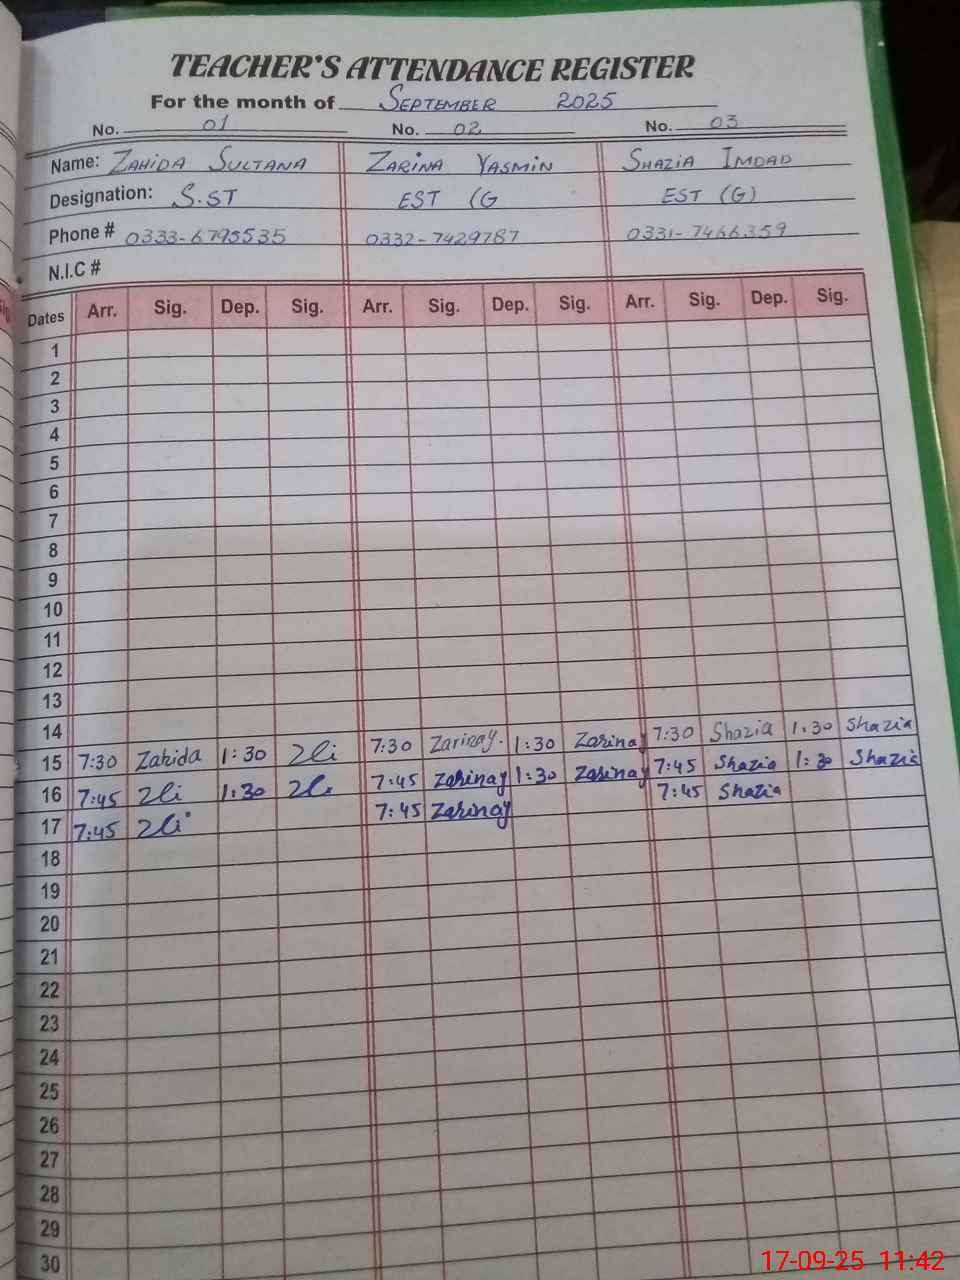 TEACHER'S ATTENDANCE REGISTER
For the month of SEPTEMBER 2025
No. 01 No. 02 No. 03
Name: ZAHIDA SULTANA ZARINA YASMIN SHAZIA IMDAD
Designation: S.ST EST (G EST (G)
Phone # 0333-6795535 0332-7429787 0331-7466359
N.I.C #
Dates Arr. Sig. Dep. Sig. Arr. Sig. Dep. Sig. Arr. Sig. Dep. Sig.
1
2
3
4
5
6
7
8
9
10
11
12
13
14
15 7:30 Zahida 1:30 7:30 Zarinay. 1:30 Zarinay 7:30 Shazia 1:30 Shazia
16 7:45 1:30 7:45 Zarinay 1:30 Zarinay 7:45 Shazia 1:30 Shazia
17 7:45 7:45 Zarinay 7:45 Shazia
18
19
20
21
22
23
24
25
26
27
28
29
30
17-09-25 11:42